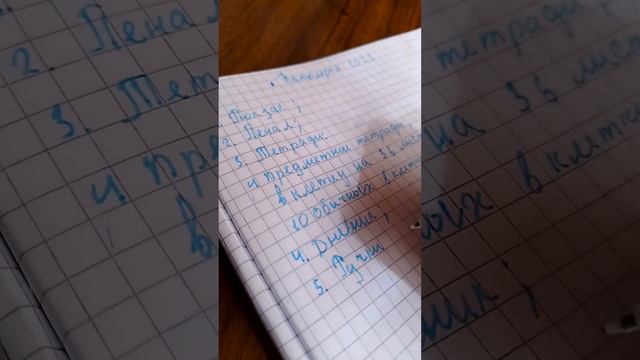 Рюкзак ;
2. Пенал ;
3. Тетради
4 предметних тетради
в клетку на 36 лист
10 обичных в клетк
4. Дневник ;
5. Ручки